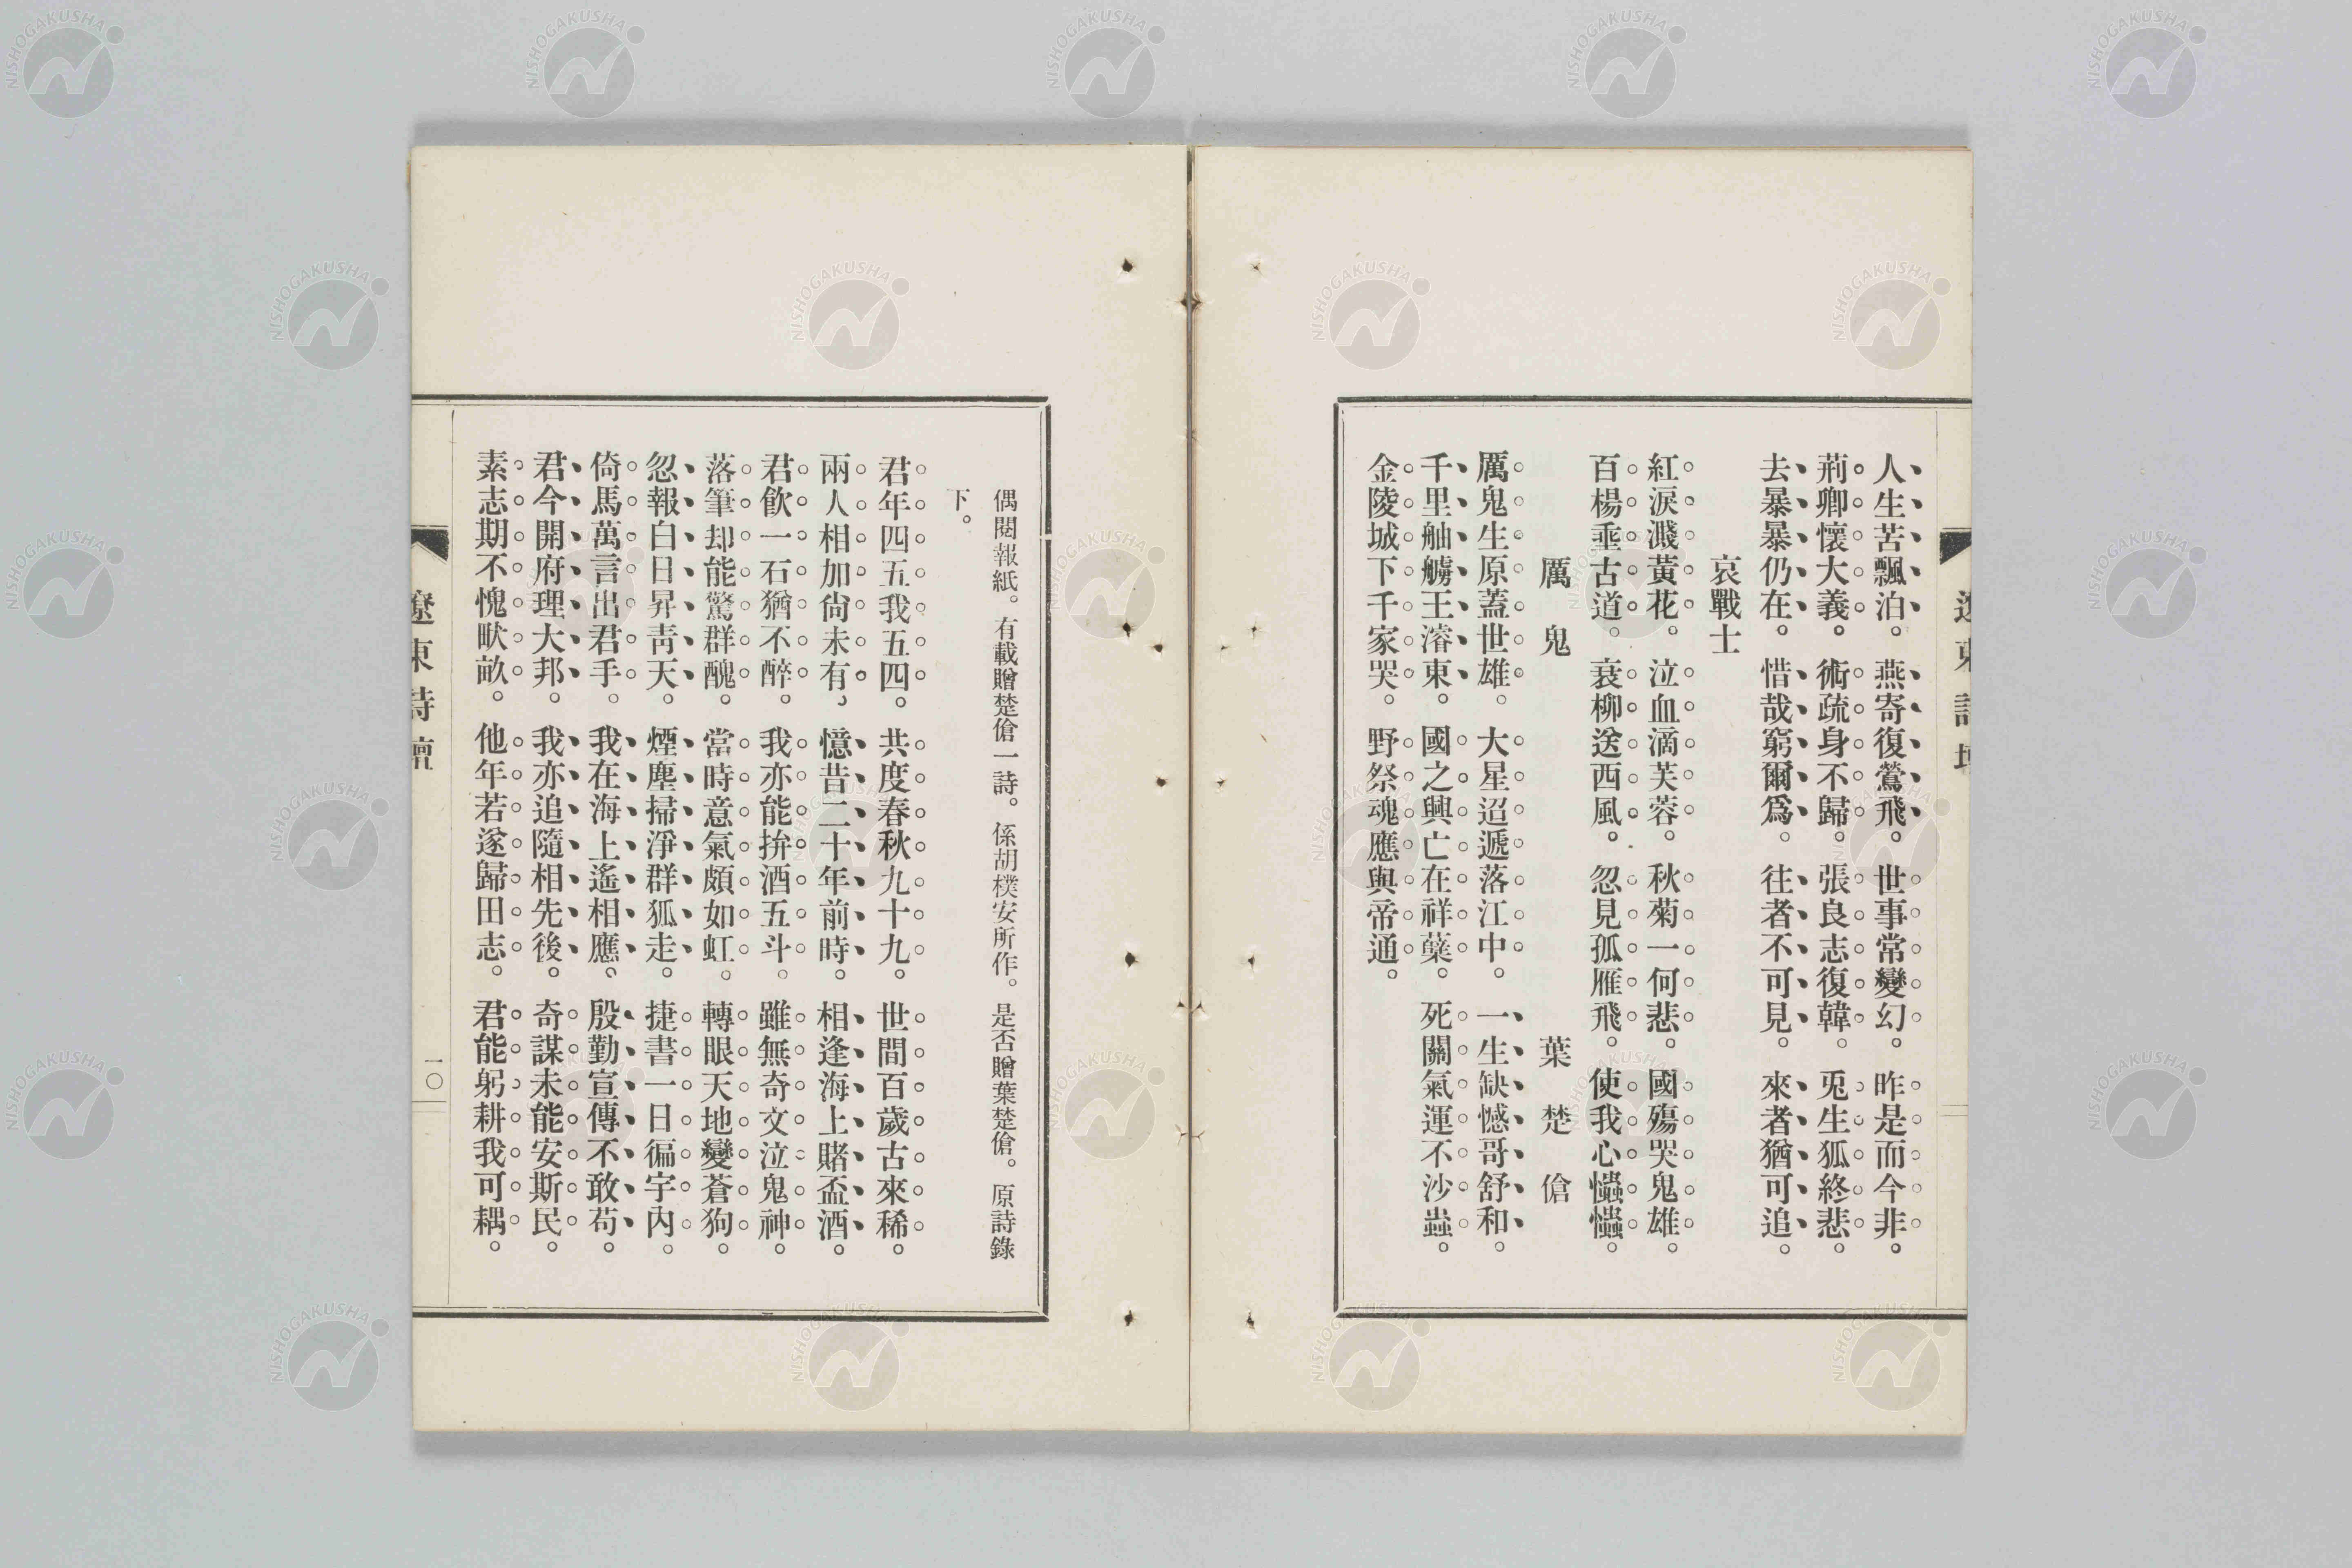 人生苦飄泊。燕寄復鶯飛。世事常變幻。昨是而今非。
荊卿懷大義。術疏身不歸。張良志復韓。兎生狐終悲。
去暴暴仍在。惜哉窮爾爲。往者不可見。來者猶可追。
哀戰士
紅淚濺黃花。泣血滴芙蓉。秋菊一何悲。國殤哭鬼雄。
百楊垂古道。衰柳送西風。忽見孤雁飛。使我心懺懺。
厲鬼 葉楚傖
厲鬼生原蓋世雄。大星迢遞落江中。一生缺憾哥舒和。
千里舳艫王濬東。國之興亡在祥蘗。死關氣運不沙蟲。
金陵城下千家哭。野祭魂應與帝通。
偶閱報紙。有載贈楚傖一詩。係胡樸安所作。是否贈葉楚傖。原詩錄
下。
君年四五我五四。共度春秋九十九。世間百歲古來稀。
兩人相加尙未有，憶昔二十年前時。相逢海上賭盃酒。
君飮一石猶不醉。我亦能拚酒五斗。雖無奇文泣鬼神。
落筆却能驚群醜。當時意氣頗如虹。轉眼天地變蒼狗。
忽報白日昇靑天。煙塵掃淨群狐走。捷書一日徧宇內。
倚馬萬言出君手。我在海上遙相應。殷勤宣傳不敢苟。
君今開府理大邦。我亦追隨相先後。奇謀未能安斯民。
素志期不愧畎畝。他年若遂歸田志。君能躬耕我可耦。
遼東詩壇
一〇
NISHOGAKUSHA